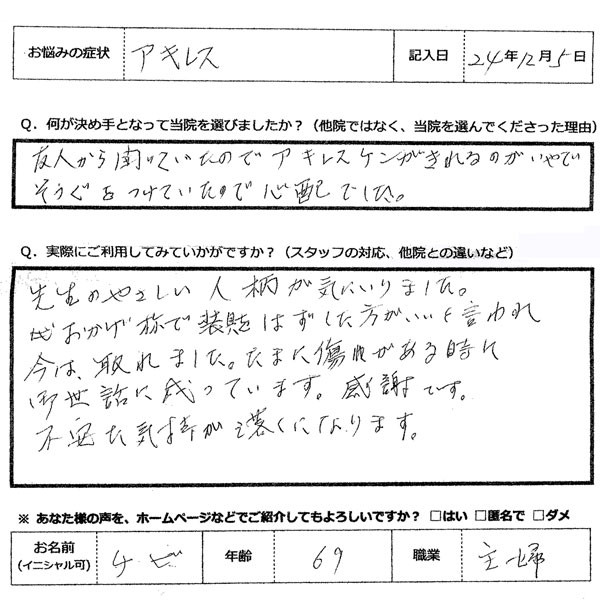 お悩みの症状 アキレス 記入日 24年12月5日
Q. 何が決め手となって当院を選びましたか？（他院ではなく、当院を選んでくださった理由）
友人から聞いていたのでアキレスケンがきれるのがいやで
そうぐをつけていたので心配でした。
Q. 実際にご利用してみていかがですか？（スタッフの対応、他院との違いなど）
先生のやさしい人柄が気にいりました。
おかげ称で装はずした方がいいと言われ
今は、取れました。たまに傷がある時に
御世話に成っています。感謝です。
不安な気持が落くになります。
※ あなた様の声を、ホームページなどでご紹介してもよろしいですか？ □はい □匿名で □ダメ
お名前 年齢 69 職業 主婦
(イニシャル可)